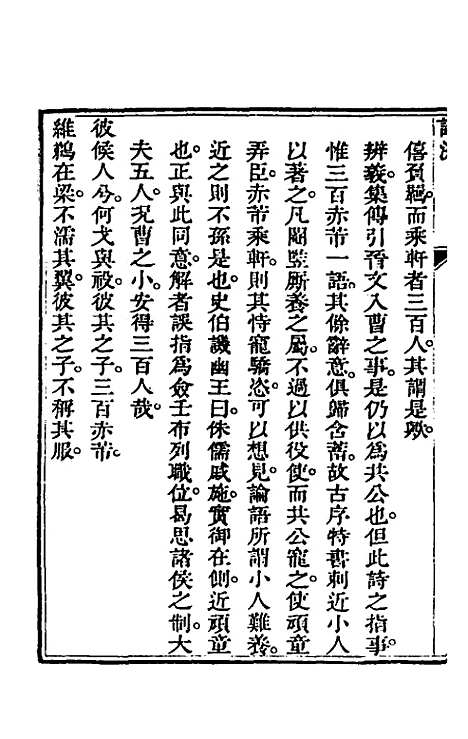 僖負羈而乘軒者三百人其謂是歟
辨義集傳引晉文入曹之事是仍以爲共公也但此詩之指事
惟三百赤芾一語其餘辭意俱歸含蓄故古序特書刺近小人
以著之凡閹豎厮養之屬不過以供役使而共公寵之使頑童
弄臣赤芾乘軒則其恃寵驕恣可以想見論語所謂小人難養
近之則不孫是也史伯譏幽王曰侏儒戚施實御在側近頑童
也正與此同意解者誤指爲僉壬布列職位曷思諸侯之制大
夫五人况曹之小安得三百人哉
彼候人兮何戈與祋彼其之子三百赤芾
維鵜在梁不濡其翼彼其之子不稱其服